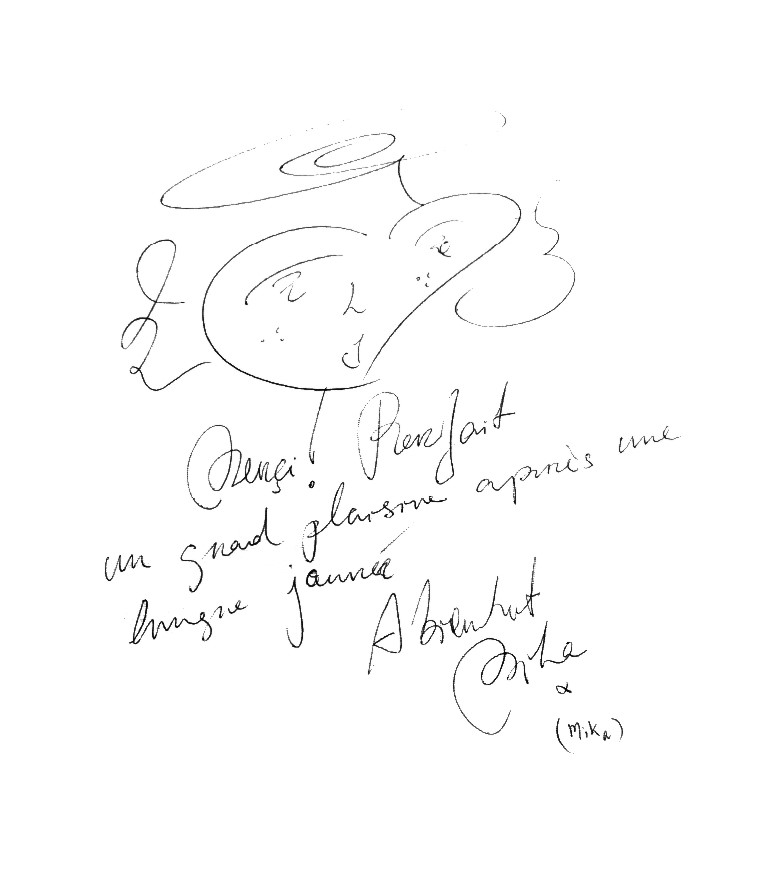 Merçi! Parfait
un grand plaisire après une
longue jounnée
A Bientot
Mika
(Mika)